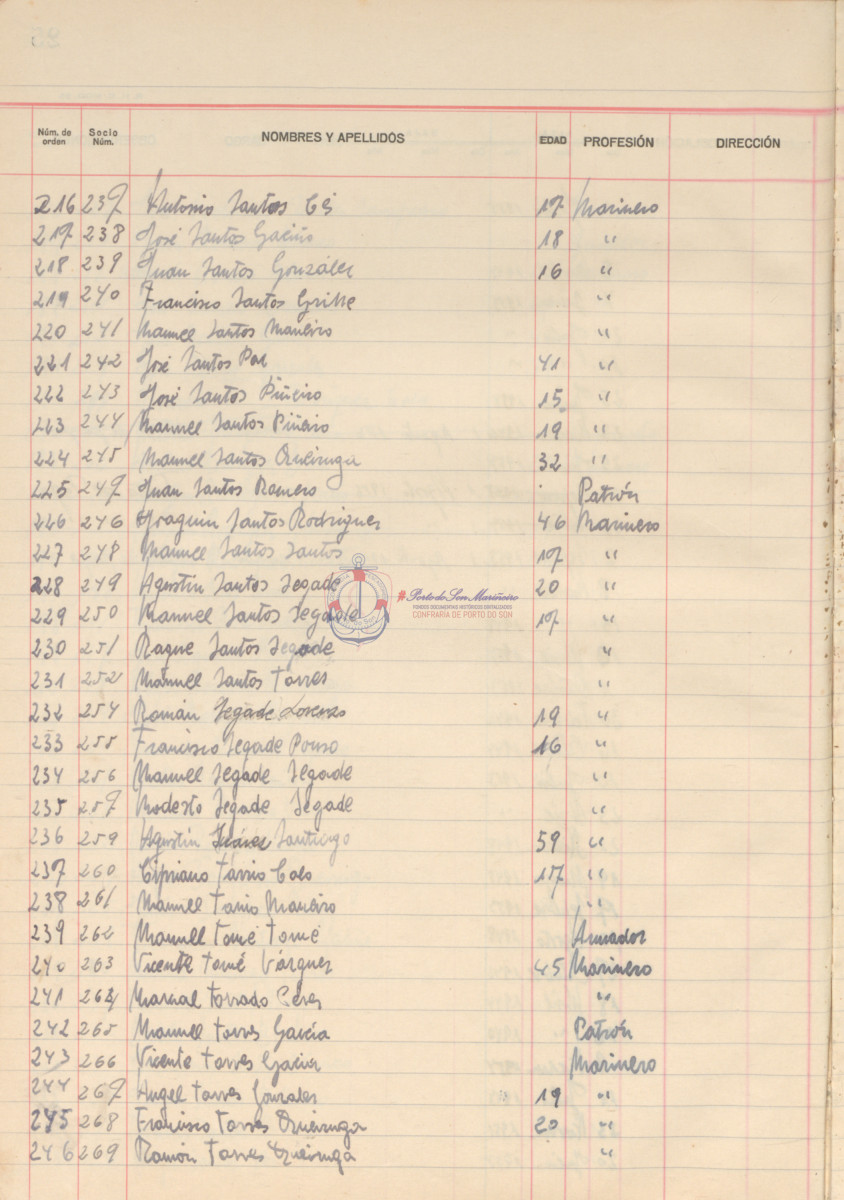 Núm. de orden Socio Núm. NOMBRES Y APELLIDOS EDAD PROFESIÓN DIRECCIÓN
216 237 Antonio Santos 17 Marinero
217 238 José Santos Gaciño 18 "
218 239 Juan Santos González 16 "
219 240 Francisco Santos "
220 241 Manuel Santos Maneiro "
221 242 José Santos 41 "
222 243 José Santos Piñeiro 15 "
223 244 Manuel Santos Piñeiro 19 "
224 245 Manuel Santos Queiruga 32 "
225 247 Juan Santos Romero Patrón
226 246 Joaquin Santos Rodrigues 46 Marinero
227 248 Manuel Santos Santos 17 "
228 249 Agustín Santos Segade 20 "
229 250 Manuel Santos Segade 17 "
230 251 Roque Santos Segade "
231 252 Manuel Santos Torres "
232 254 Román Segade Lorenzo 19 "
233 255 Francisco Segade Pouso 16 "
234 256 Manuel Segade Segade "
235 257 Modesto Segade Segade "
236 259 Agustín Suárez Santiago 59 "
237 260 Cipriano Tarrio 17 "
238 261 Manuel Tarrio Maneiro "
239 262 Manuel Tomé Tomé Armador
240 263 Vicente Tomé Vázquez 45 Marinero
241 264 Marcial Torrado "
242 265 Manuel Torres García Patrón
243 266 Vicente Torres García Marinero
244 267 Angel Torres Gonzales 19 "
245 268 Francisco Torres Queiruga 20 "
246 269 Ramón Torres Queiruga "
#Porto do Son Mariñeiro
FONDOS DOCUMENTAIS HISTÓRICOS DIXITALIZADOS
CONFRARÍA DE PORTO DO SON